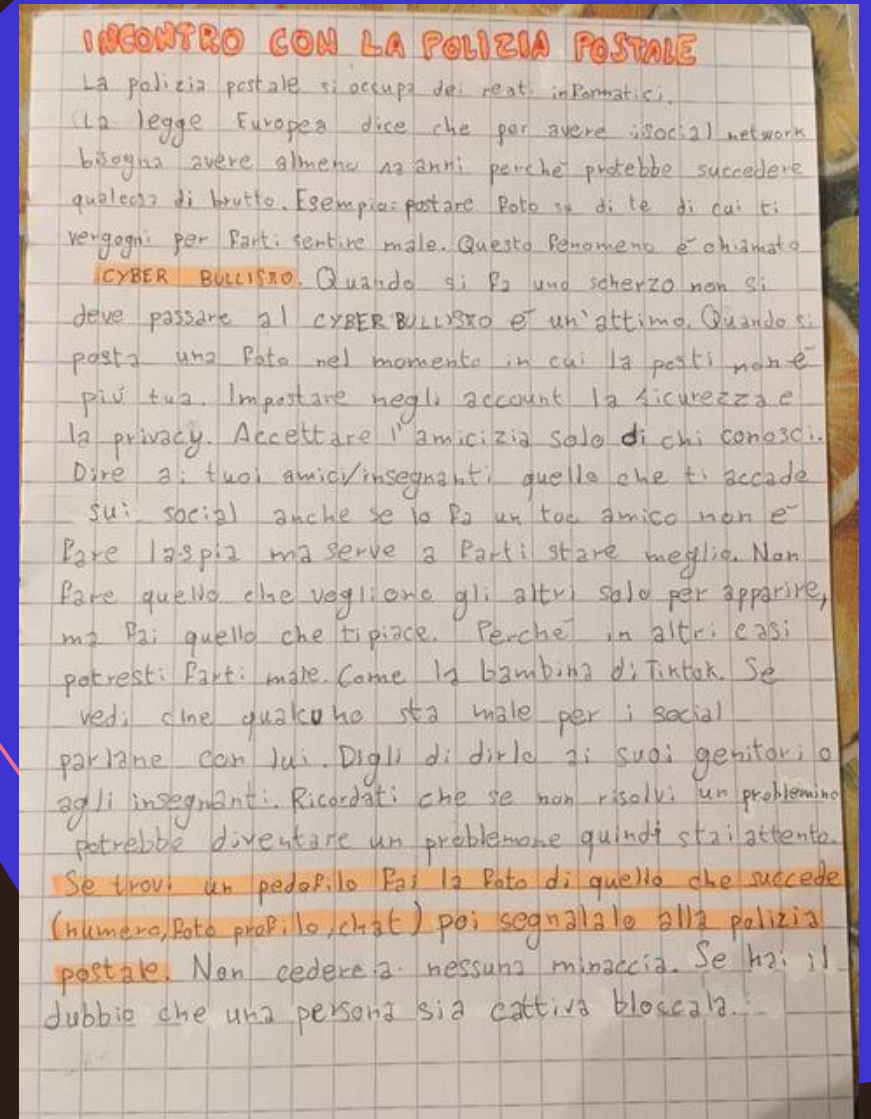 INCONTRO CON LA POLIZIA POSTALE
La polizia postale si occupa dei reati informatici.
La legge Europea dice che per avere i social network
bisogna avere almeno 13 anni perchē protebbe succedere
qualcosa di brutto. Esempio: postare foto su di te di cui ti
vergogni per farti sentire male. Questo fenomeno ē chiamato
CYBER BULLISMO. Quando si fa uno scherzo non si
deve passare al CYBER BULLISMO ē un'attimo. Quando si
posta una foto nel momento in cui la posti non ē
piú tua. Impostare negli account la sicurezza e
la privacy. Accettare l'amicizia solo di chi conosci.
Dire ai tuoi amici/insegnanti quello che ti accade
sui social anche se lo fa un tuo amico non ē
fare la spia ma serve a farti stare meglio. Non
fare quello che vogliono gli altri solo per apparire,
ma fai quello che ti piace. Perchē in altri casi
potresti farti male. Come la bambina di Tiktok. Se
vedi che qualcuno sta male per i social
parlane con lui. Digli di dirlo ai suoi genitori o
agli insegnanti. Ricordati che se non risolvi un problemino
potrebbe diventare un problemone quindi stai attento.
Se trovi un pedofilo fai la foto di quello che succede
(numero, foto profilo, chat) poi segnalalo alla polizia
postale. Non cedere a nessuna minaccia. Se hai il
dubbio che una persona sia cattiva bloccala.